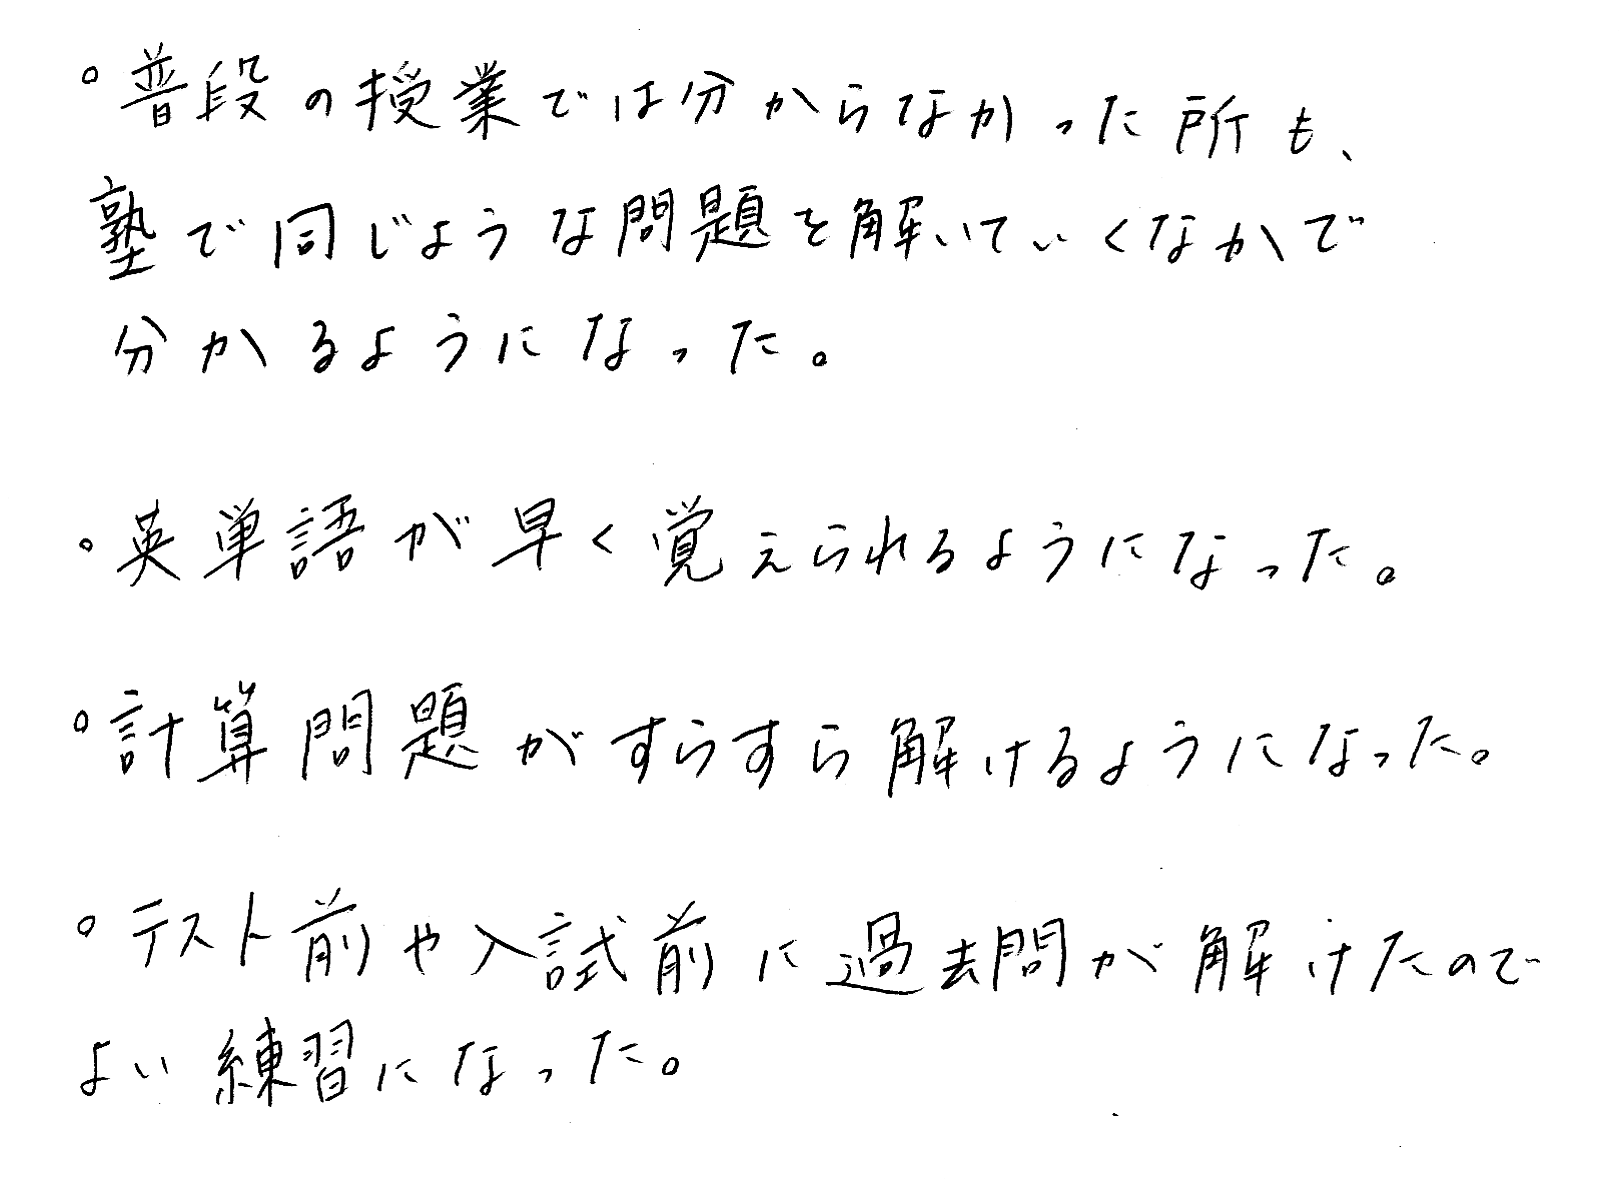 。普段の授業では分からなかった所も、
塾で同じような問題を解いていくなかで
分かるようになった。
。英単語が早く覚えられるようになった。
。計算問題がすらすら解けるようになった。
。テスト前や入試前に過去問が解けたので
よい練習になった。